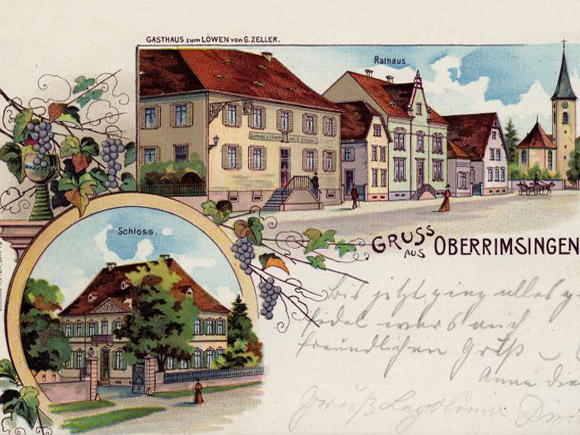 GASTHAUS zum LÖWEN von G. ZELLER.
Rathaus
Schloss.
GRUSS
AUS OBERRIMSINGEN
Bis jetzt ging alles g
fidel wars auch
freundlichen Gruß
Anna die
Gruß